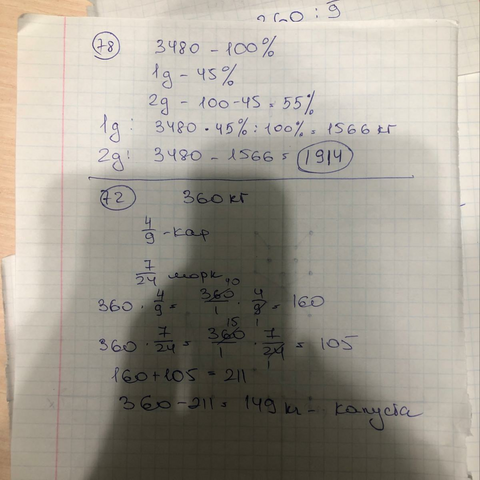 360 : 9
78 3480 - 100%
1g - 45%
2g - 100-45 = 55%
1g: 3480 • 45% : 100% = 1566 кг
2g: 3480 - 1566 = 1914
72 360 кг
4/9 - кар
7/24 морк
360 · 4/9 = 360/1 40 · 4/9 1 = 160
360 · 7/24 = 360/1 15 · 7/24 1 = 105
160+105 = 211
360-211 = 149 кг - капуста